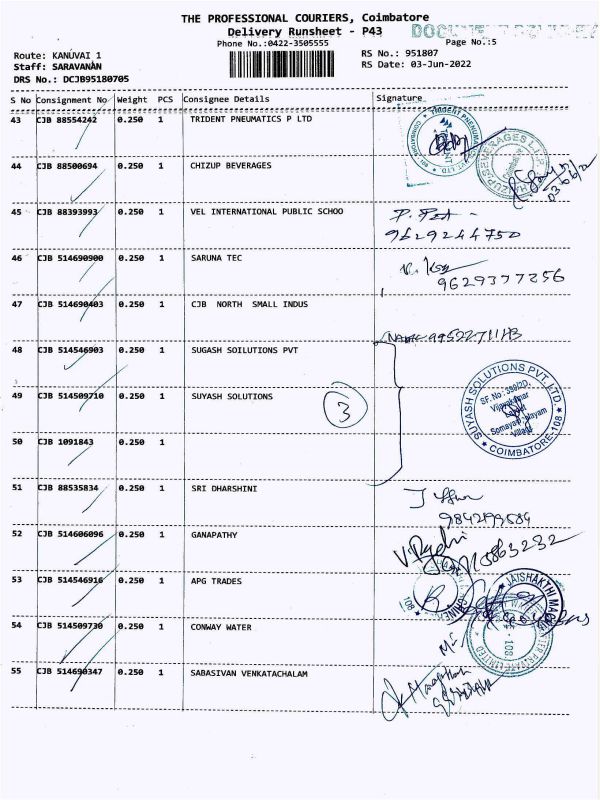 THE PROFESSIONAL COURIERS, Coimbatore
Delivery Runsheet - P43
Phone No.:0422-3505555
Page No.:5
Route: KANUVAI 1
RS No.: 951807
Staff: SARAVANAN
RS Date: 03-Jun-2022
DRS No.: DCJB95180705
S No Consignment No Weight PCS Consignee Details Signature
43 CJB 88554242 0.250 1 TRIDENT PNEUMATICS P LTD
44 CJB 88500694 0.250 1 CHIZUP BEVERAGES
45 CJB 88393993 0.250 1 VEL INTERNATIONAL PUBLIC SCHOO
9629244750
46 CJB 514690900 0.250 1 SARUNA TEC
9629377256
47 CJB 514690403 0.250 1 CJB NORTH SMALL INDUS
48 CJB 514546903 0.250 1 SUGASH SOILUTIONS PVT
49 CJB 514509710 0.250 1 SUYASH SOLUTIONS
3
SUYASH SOLUTIONS PVT. LTD.
SF.No:
Somaya
Village
COIMBATORE-108
50 CJB 1091843 0.250 1
51 CJB 88535834 0.250 1 SRI DHARSHINI
52 CJB 514606096 0.250 1 GANAPATHY
53 CJB 514546916 0.250 1 APG TRADES
54 CJB 514509730 0.250 1 CONWAY WATER
55 CJB 514690347 0.250 1 SABASIVAN VENKATACHALAM